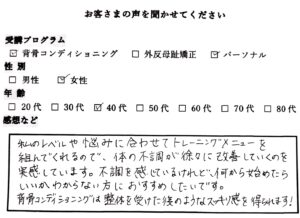 お客さまの声を聞かせてください
受講プログラム
☑ 背骨コンディショニング □ 外反母趾矯正 ☑ パーソナル
性 別
□ 男性 ☑ 女性
年 齢
□ 20 代 □ 30 代 ☑ 40 代 □ 50 代 □ 60 代 □ 70 代 □ 80 代
感想など
私のレベルや悩みに合わせてトレーニングメニューを
組んでくれるので、体の不調が徐々に改善していくのを
実感しています。不調を感じているけれど、何から始めたら
いいかわからない方におすすめしたいです。
背骨コンディショニングは整体を受けた後のようなスッキリ感を得られます!